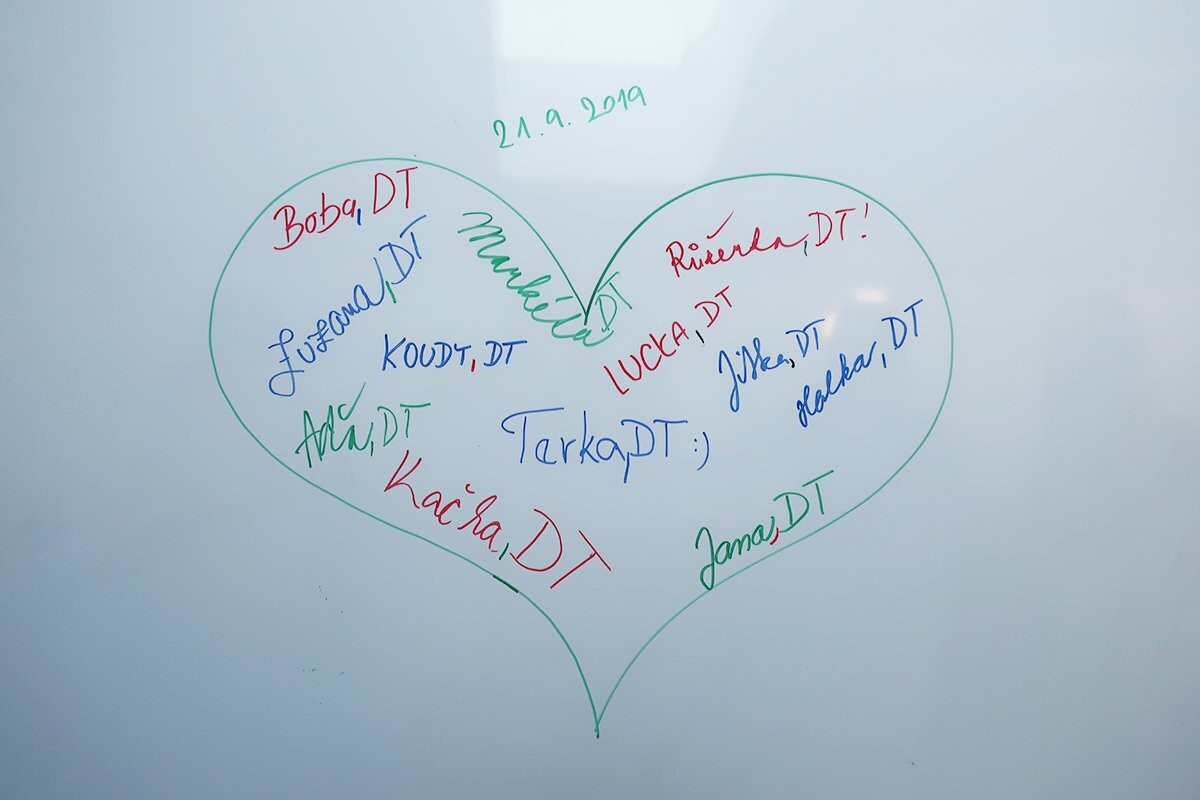 21.9.2019
Boba, DT
Markéta DT
Růženka, DT!
Zuzana, DT
KOUDY, DT
LUCKA, DT
Jitka, DT
Halka, DT
Áďa, DT
Terka, DT :)
Kačka, DT
Jana, DT